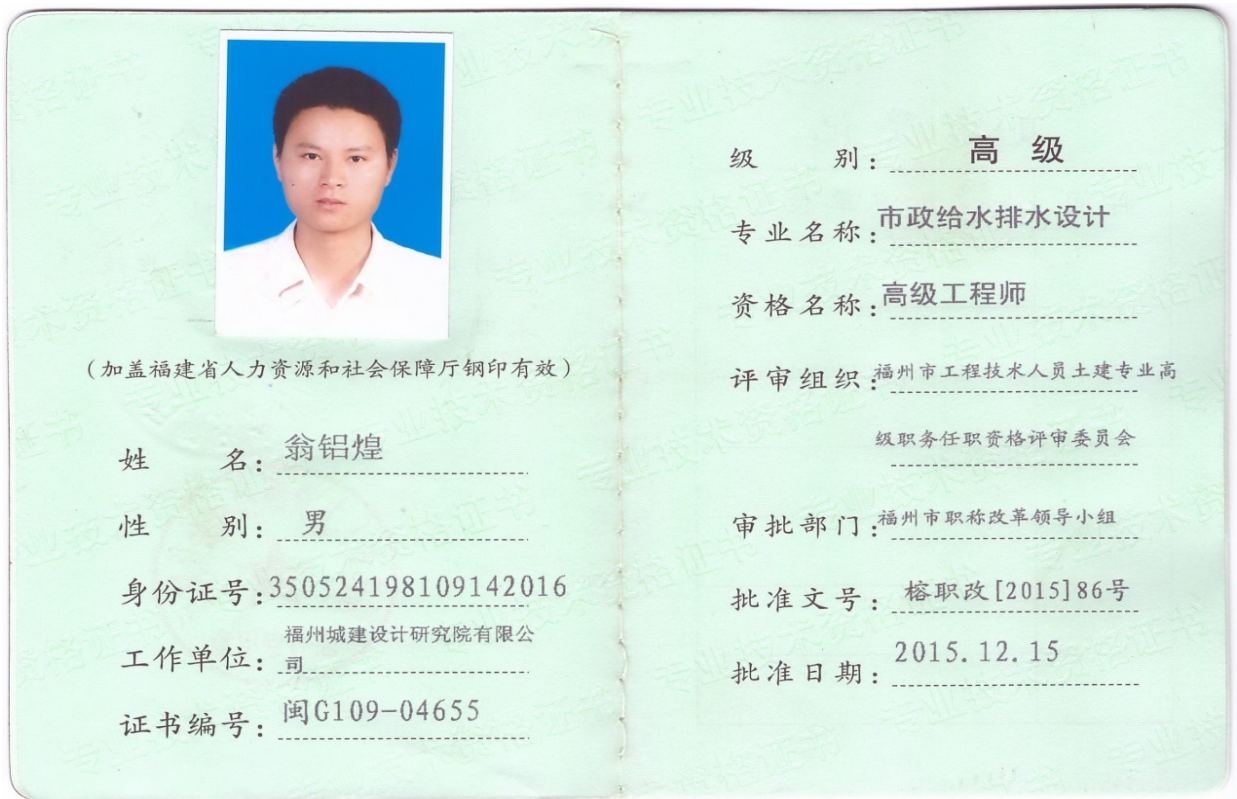 (加盖福建省人力资源和社会保障厅钢印有效)
姓 名: 翁铝煌
性 别: 男
身份证号: 350524198109142016
工作单位: 福州城建设计研究院有限公
司
证书编号: 闽G109-04655
级 别: 高 级
专业名称: 市政给水排水设计
资格名称: 高级工程师
评审组织: 福州市工程技术人员土建专业高
级职务任职资格评审委员会
审批部门: 福州市职称改革领导小组
批准文号: 榕职改[2015]86号
批准日期: 2015.12.15